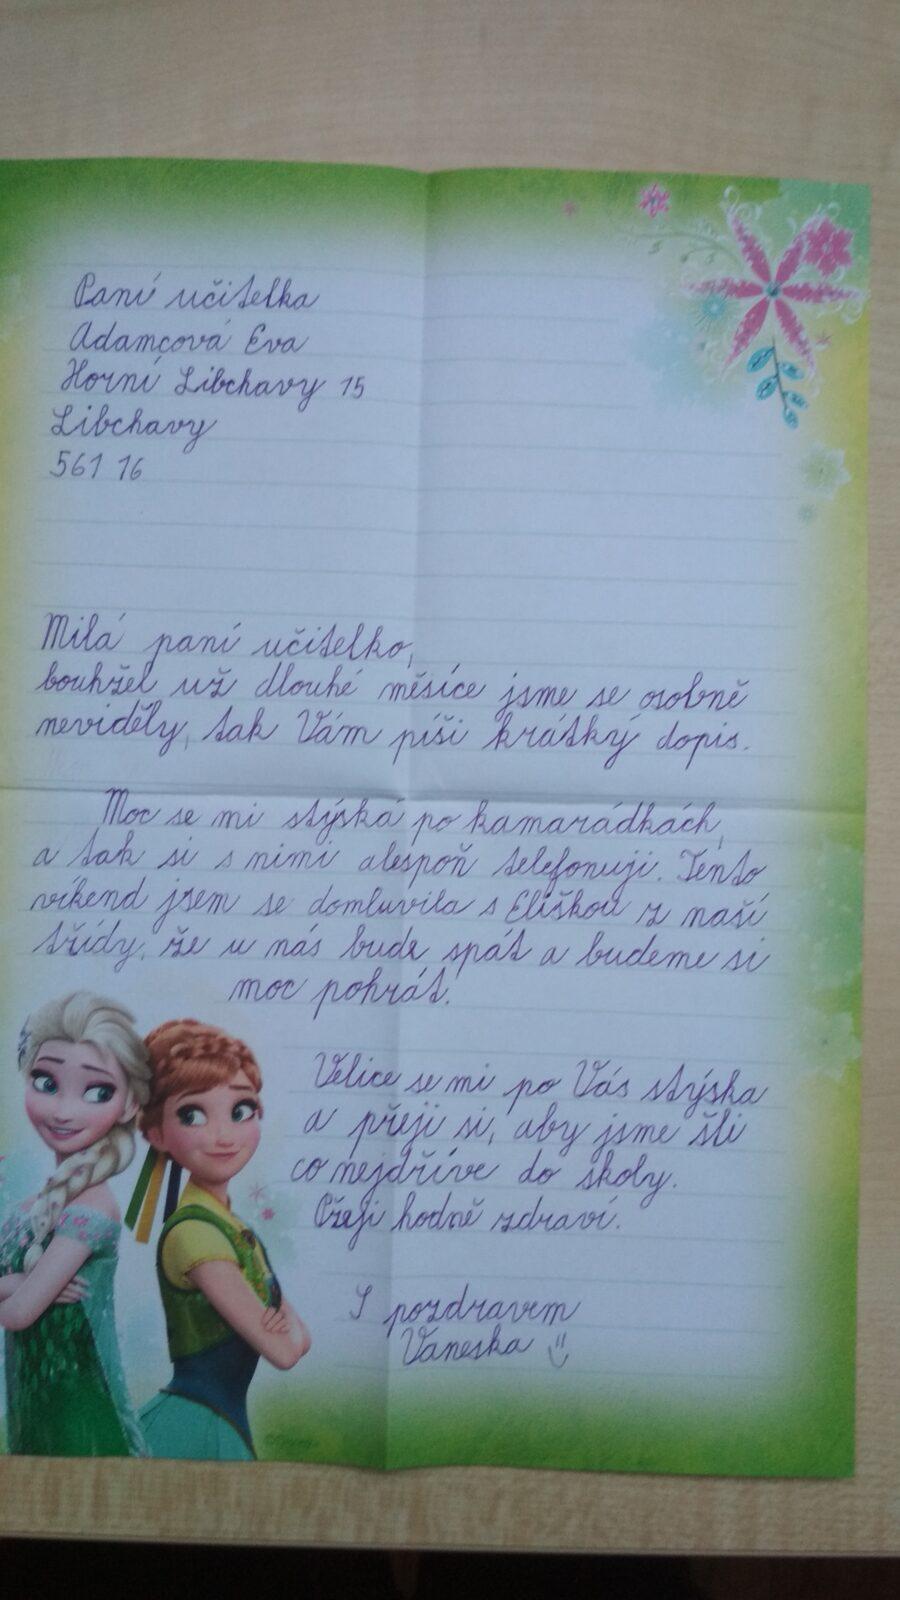 Paní učitelka
Adamcová Eva
Horní Libchavy 15
Libchavy
561 16
Milá paní učitelko,
bouhžel už dlouhé měsíce jsme se osobně
neviděly, tak Vám píši krátký dopis.
Moc se mi stýská po kamarádkách,
a tak si s nimi alespoň telefonuji. Tento
víkend jsem se domluvila s Eliškou z naší
třídy, že u nás bude spát a budeme si
moc pohrát.
Velice se mi po Vás stýska
a přeji si, aby jsme šli
co nejdříve do školy.
Přeji hodně zdraví.
S pozdravem
Vaneska